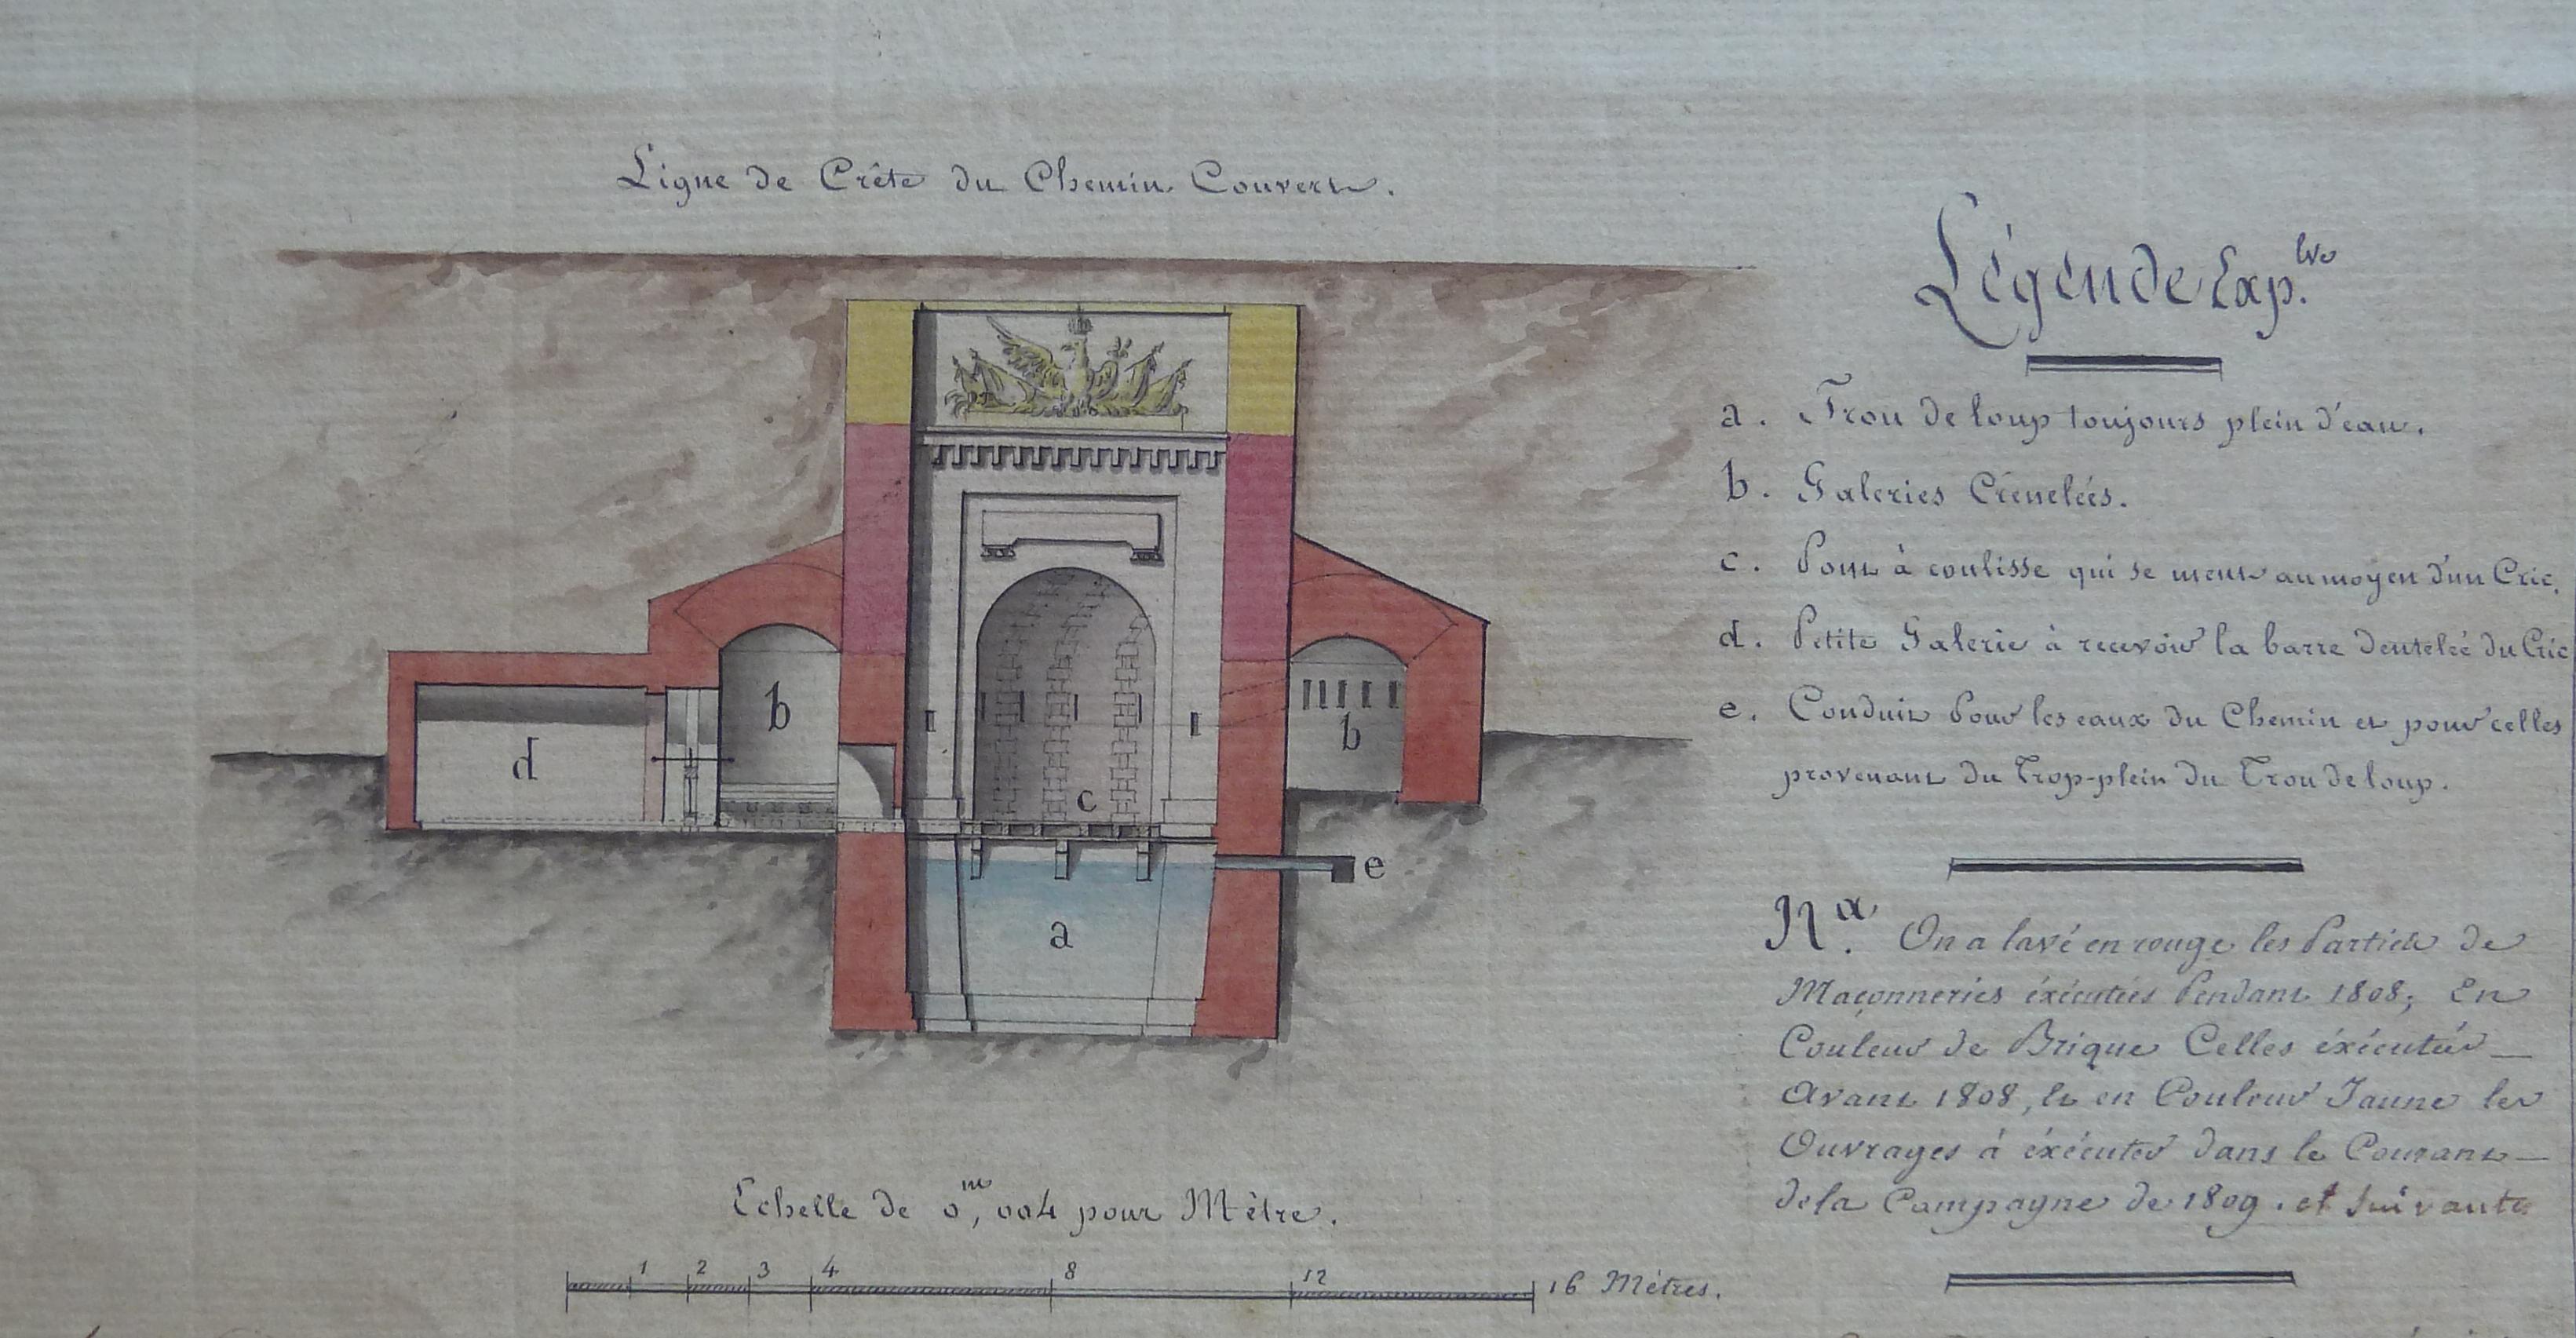 Ligne de Crête du Chemin Couvert.
Légende Exp.tve
a. Trou de loup toujours plein d'eau.
b. Galeries Crénelées.
c. Pont à coulisse qui se meut au moyen d'un Cric.
d. Petite Galerie à recevoir la barre dentelée du Cric
e. Conduit Pour les eaux du Chemin et pour celles
provenant du Trop-plein du Trou de loup.
N.a On a lavé en rouge les Parties de
Maçonneries éxécutées Pendant 1808; En
Couleur de Brique Celles éxécutées
Avant 1808, et en Couleur Jaune les
Ouvrages à éxécuter dans le Courant
de la Campagne de 1809. et suivante
b
d
b
c
e
a
Echelle de 0,m004 pour Mètre.
1 2 3 4 8 12 16 Mètres.